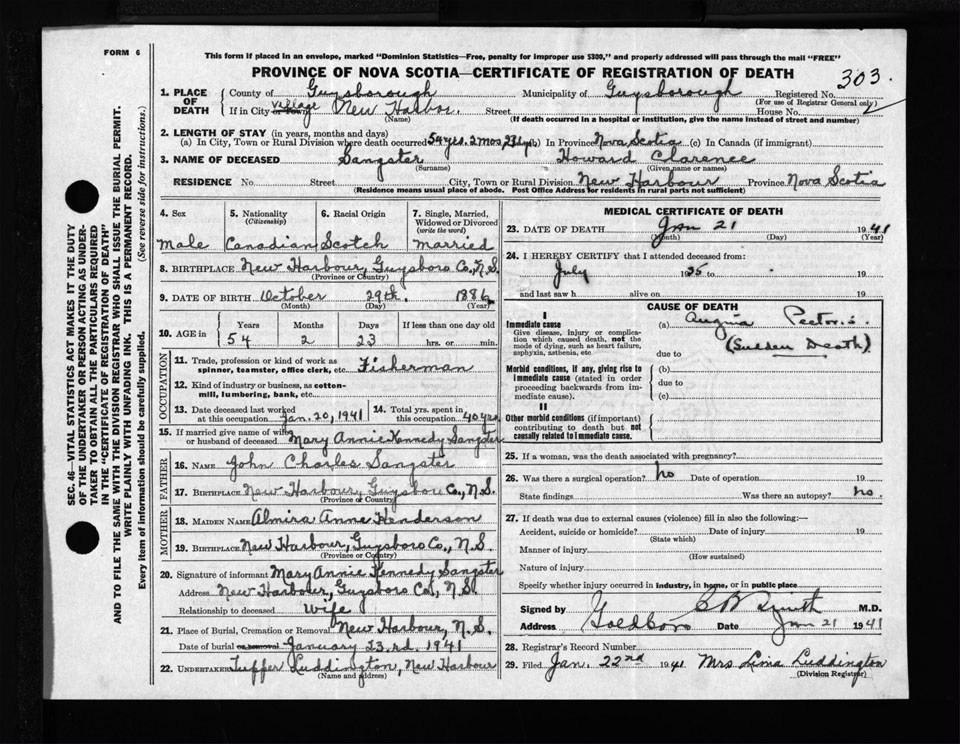 FORM 6
This form if placed in an envelope, marked "Dominion Statistics—Free, penalty for improper use $300," and properly addressed will pass through the mail "FREE"
PROVINCE OF NOVA SCOTIA—CERTIFICATE OF REGISTRATION OF DEATH
303
1. PLACE OF DEATH County of Guysborough Municipality of Guysborough Registered No.
(For use of Registrar General only)
If in City or Town Village New Harbor. Street House No.
(Name) (If death occurred in a hospital or institution, give the name instead of street and number)
2. LENGTH OF STAY (in years, months and days)
(a) In City, Town or Rural Division where death occurred 54 yrs. 2 mos, 23 dys (b) In Province Nova Scotia (c) In Canada (if immigrant)
3. NAME OF DECEASED Sangster Howard Clarence
(Surname) (Given name or names)
RESIDENCE No. Street City, Town or Rural Division New Harbour Province Nova Scotia
(Residence means usual place of abode. Post Office Address for residents in rural parts not sufficient)
4. Sex Male
5. Nationality (Citizenship) Canadian
6. Racial Origin Scotch
7. Single, Married, Widowed or Divorced (write the word) Married
8. BIRTHPLACE New Harbour, Guysboro Co., N.S.
(Province or Country)
9. DATE OF BIRTH October 29th. 1886
(Month) (Day) (Year)
10. AGE in Years Months Days If less than one day old
54 2 23 hrs. or min.
OCCUPATION
11. Trade, profession or kind of work as spinner, teamster, office clerk, etc. Fisherman
12. Kind of industry or business, as cotton-mill, lumbering, bank, etc.
13. Date deceased last worked at this occupation Jan. 20, 1941
14. Total yrs. spent in this occupation 40 yrs.
15. If married give name of wife or husband of deceased Mary Annie Kennedy Sangster
FATHER
16. NAME John Charles Sangster
17. BIRTHPLACE New Harbour, Guysboro Co., N.S.
(Province or Country)
MOTHER
18. MAIDEN NAME Almira Anne Henderson
19. BIRTHPLACE New Harbour, Guysboro Co., N.S.
(Province or Country)
20. Signature of informant Mary Annie Kennedy Sangster
Address New Harbour, Guysboro Co., N.S.
Relationship to deceased Wife
21. Place of Burial, Cremation or Removal New Harbour, N.S.
Date of burial or removal January 23.rd. 1941
22. UNDERTAKER Tuffer Luddington, New Harbour
(Name and address)
MEDICAL CERTIFICATE OF DEATH
23. DATE OF DEATH Jan 21 1941
(Month) (Day) (Year)
24. I HEREBY CERTIFY that I attended deceased from:
July 1935 to 19
and last saw h alive on 19
CAUSE OF DEATH
I
Immediate cause
Give disease, injury or complication which caused death, not the mode of dying, such as heart failure, asphyxia, asthenia, etc
(a) Angina Pectoris.
(Sudden Death)
due to
Morbid conditions, if any, giving rise to immediate cause (stated in order proceeding backwards from immediate cause).
(b)
due to
(c)
II
Other morbid conditions (if important) contributing to death but not causally related to immediate cause.
25. If a woman, was the death associated with pregnancy?
26. Was there a surgical operation? no Date of operation 19
State findings Was there an autopsy? no.
27. If death was due to external causes (violence) fill in also the following:—
Accident, suicide or homicide? Date of injury 19
(State which)
Manner of injury
(How sustained)
Nature of injury
Specify whether injury occurred in industry, in home, or in public place
Signed by C B Smith M.D.
Address Goldboro Date Jan 21 1941
28. Registrar's Record Number
29. Filed Jan. 22nd 1941 Mrs Lima Luddington
(Division Registrar)
SEC. 46—VITAL STATISTICS ACT MAKES IT THE DUTY OF THE UNDERTAKER OR PERSON ACTING AS UNDERTAKER TO OBTAIN ALL THE PARTICULARS REQUIRED IN THE "CERTIFICATE OF REGISTRATION OF DEATH" AND TO FILE THE SAME WITH THE DIVISION REGISTRAR WHO SHALL ISSUE THE BURIAL PERMIT.
WRITE PLAINLY WITH UNFADING INK. THIS IS A PERMANENT RECORD.
Every item of information should be carefully supplied. (See reverse side for instructions.)